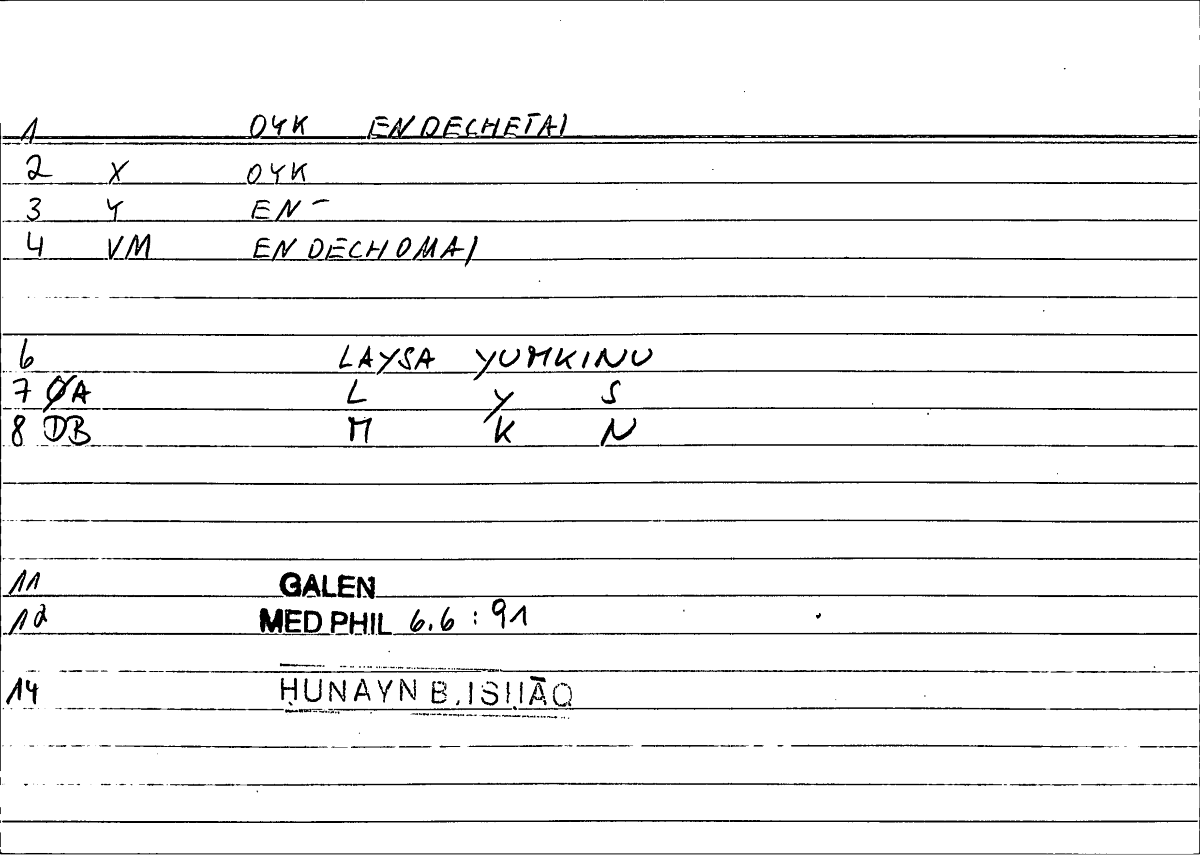 1 OYK ENDECHETAI
2 X OYK
3 Y EN-
4 VM ENDECHOMAI
6 LAYSA YUMKINU
7 ØA L Y S
8 DB M K N
11 GALEN
12 MED PHIL 6.6 : 91
14 ḤUNAYN B. ISḤĀQ